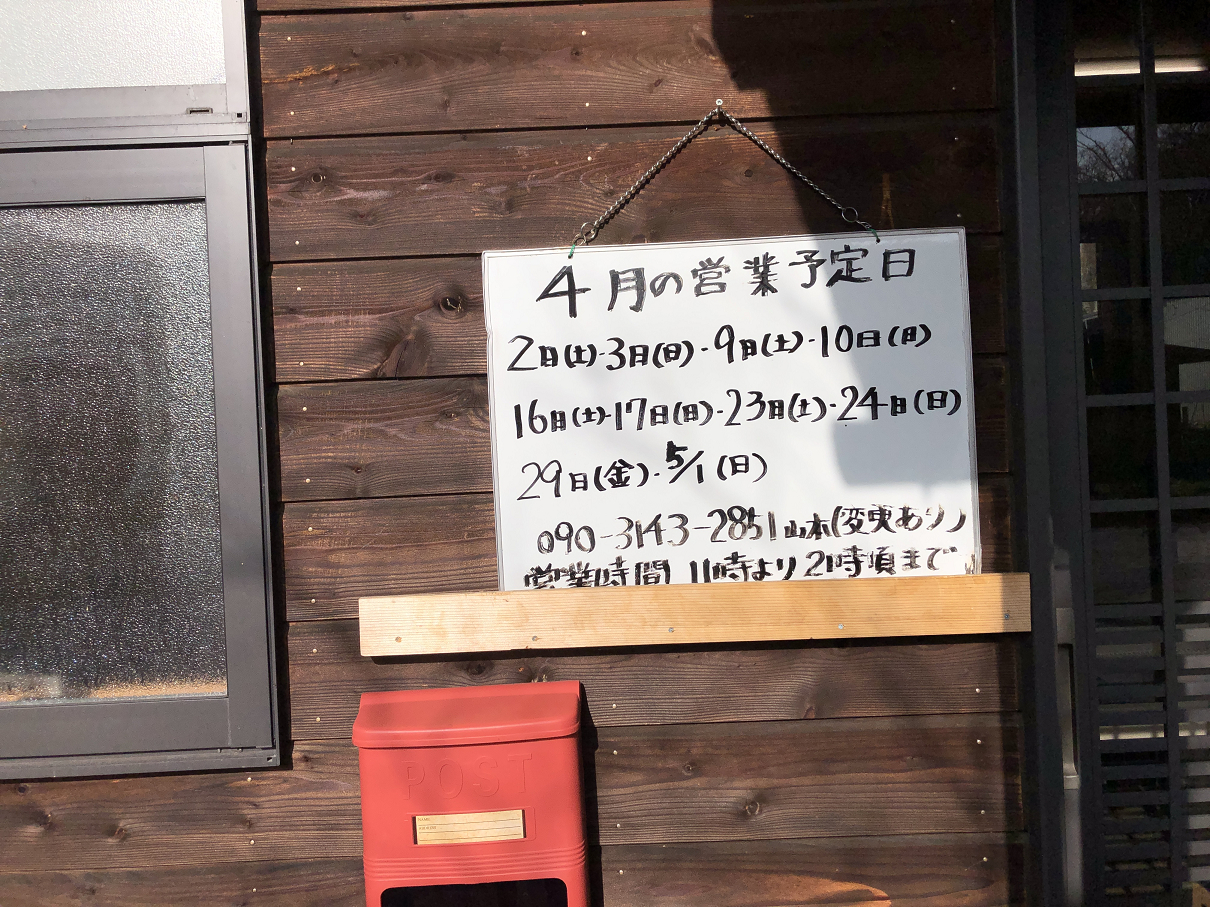 4月の営業予定日
2日(土)・3日(日)・9日(土)・10日(月)
16日(土)・17日(日)・23日(土)・24日(日)
29日(金)・5/1(日)
090-3143-2851山本(変更あり)
営業時間 11時より21時頃まで
POST